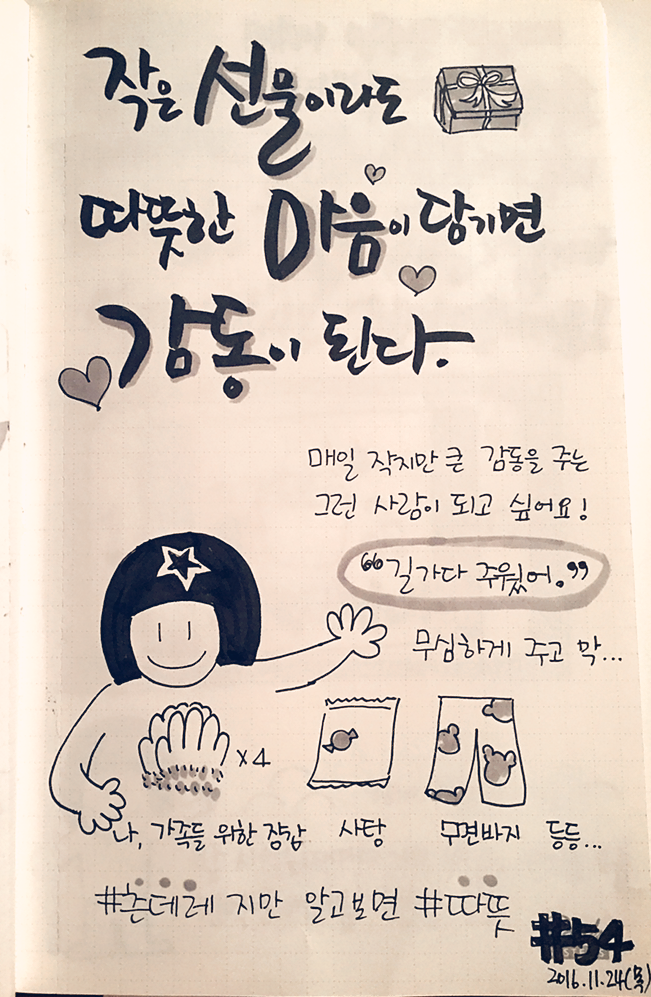 작은 선물이라도
따뜻한 마음이 담기면
감동이 된다.
매일 작지만 큰 감동을 주는
그런 사람이 되고 싶어요!
"길가다 주웠어."
무심하게 주고 막...
x4
나, 가족들 위한 장갑 사탕 수면바지 등등...
#츤데레 지만 알고보면 #따뜻
#54
2016.11.24(목)